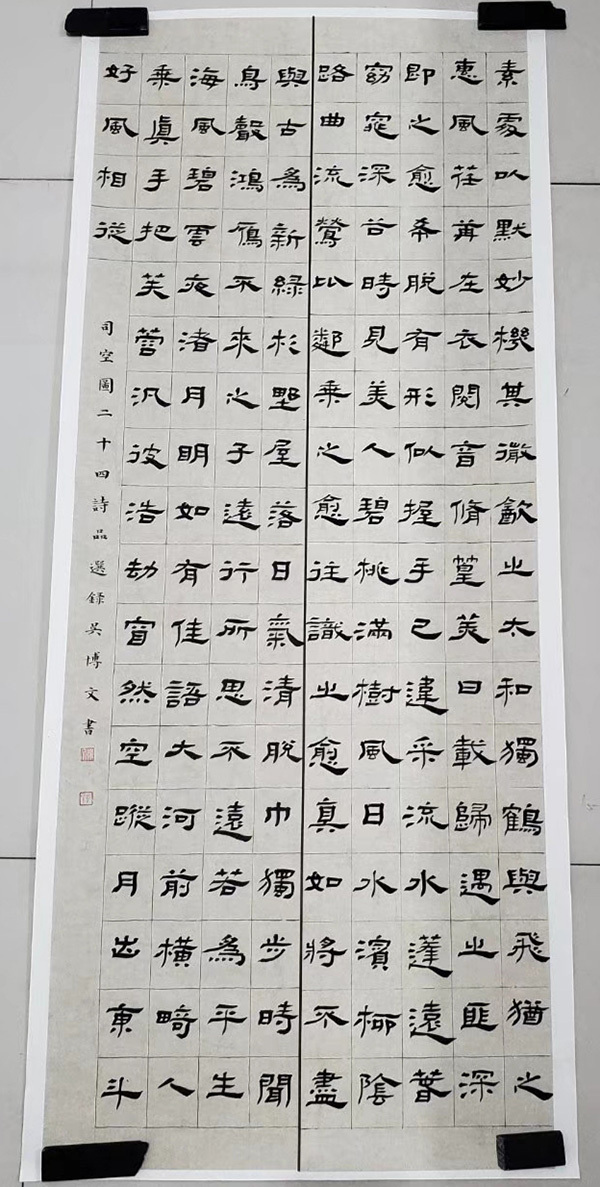 素處以默妙機其微飲之太和獨鶴與飛猶之
惠風荏苒在衣閱音脩篁美曰載歸遇之匪深
即之愈希脫有形似握手已違采流水蓬遠春
窈窕深谷時見美人碧桃滿樹風日水濱柳陰
路曲流鶯比鄰乘之愈往識之愈真如將不盡
與古為新綠杉野屋落日氣清脫巾獨步時聞
鳥聲鴻雁不來之子遠行所思不遠若為平生
海風碧雲夜渚月明如有佳語大河前橫畸人
乘真手把芙蓉汎彼浩劫窅然空蹤月出東斗
好風相從
司空圖二十四詩品選錄吳博文書